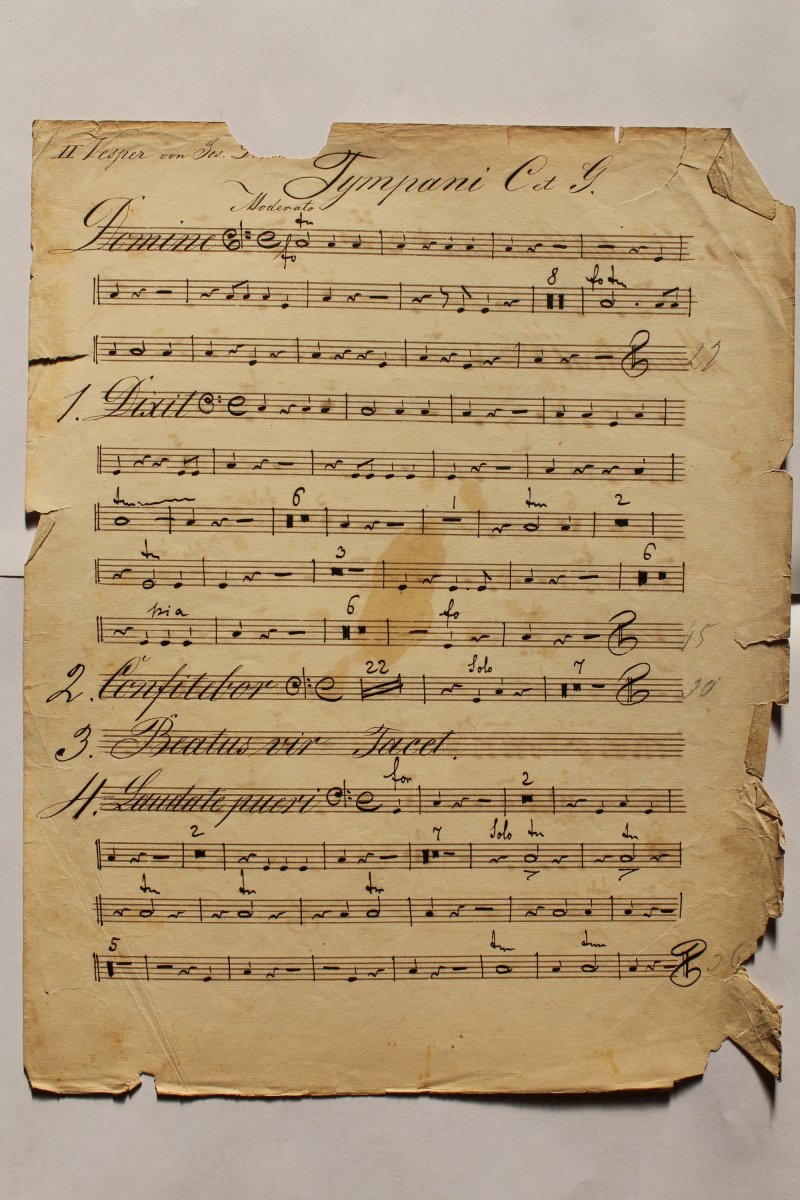 II Vesper von Jos.
Tympani C et G.
Moderato
tr
Domine
fo
8 fo tr
22
1. Dixit
tr 6 1 tr 2
tr 3 6
pia 6 fo
45
2. Confitebor 22 Solo 7
30
3. Beatus vir Tacet.
for 2
4. Laudate pueri
2 7 Solo tr tr
tr tr tr
5 tr tr
36